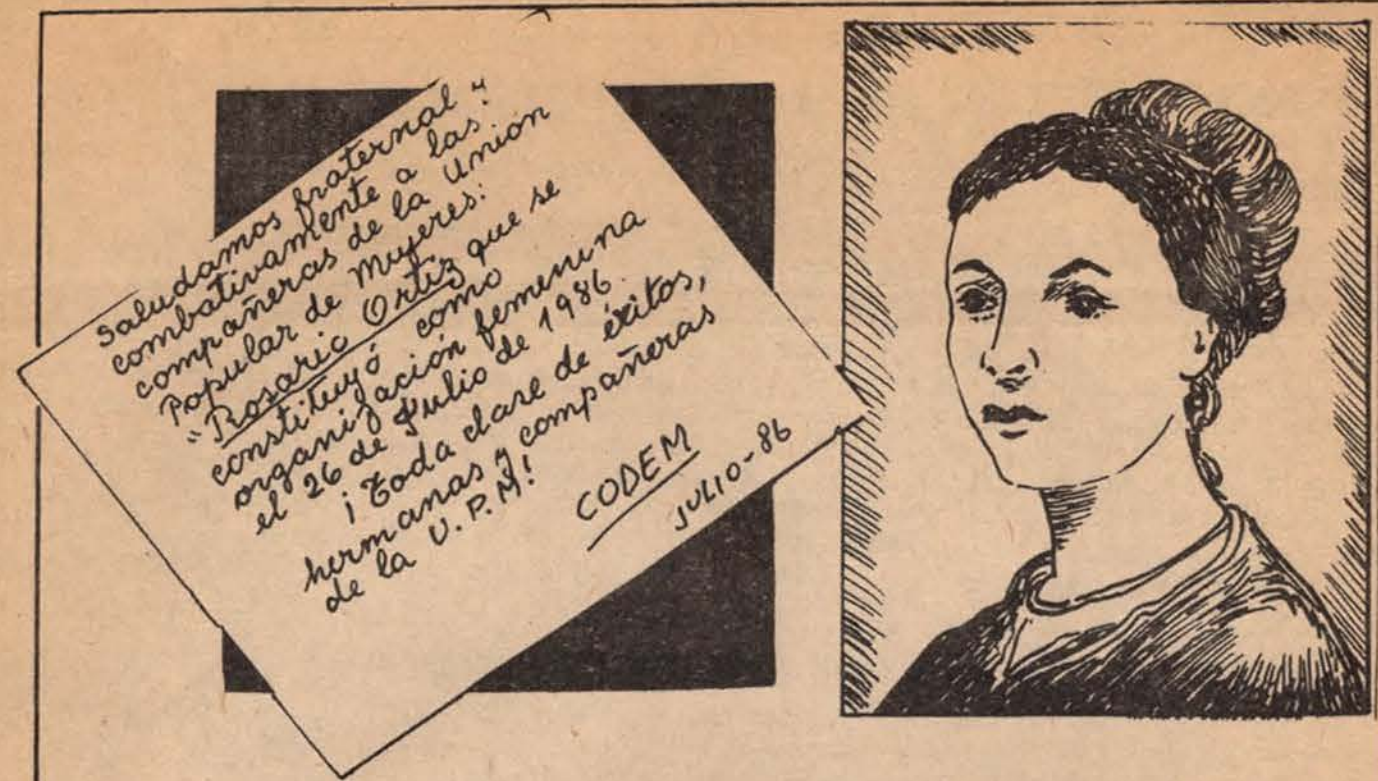 Saludamos fraternal y
combativamente a las
compañeras de la Unión
Popular de Mujeres:
"Rosario Ortiz que se
constituyó como
organización femenina
el 26 de Julio de 1986.
¡Toda clase de éxitos,
hermanas y compañeras
de la U.P.M!
CODEM
JULIO-86